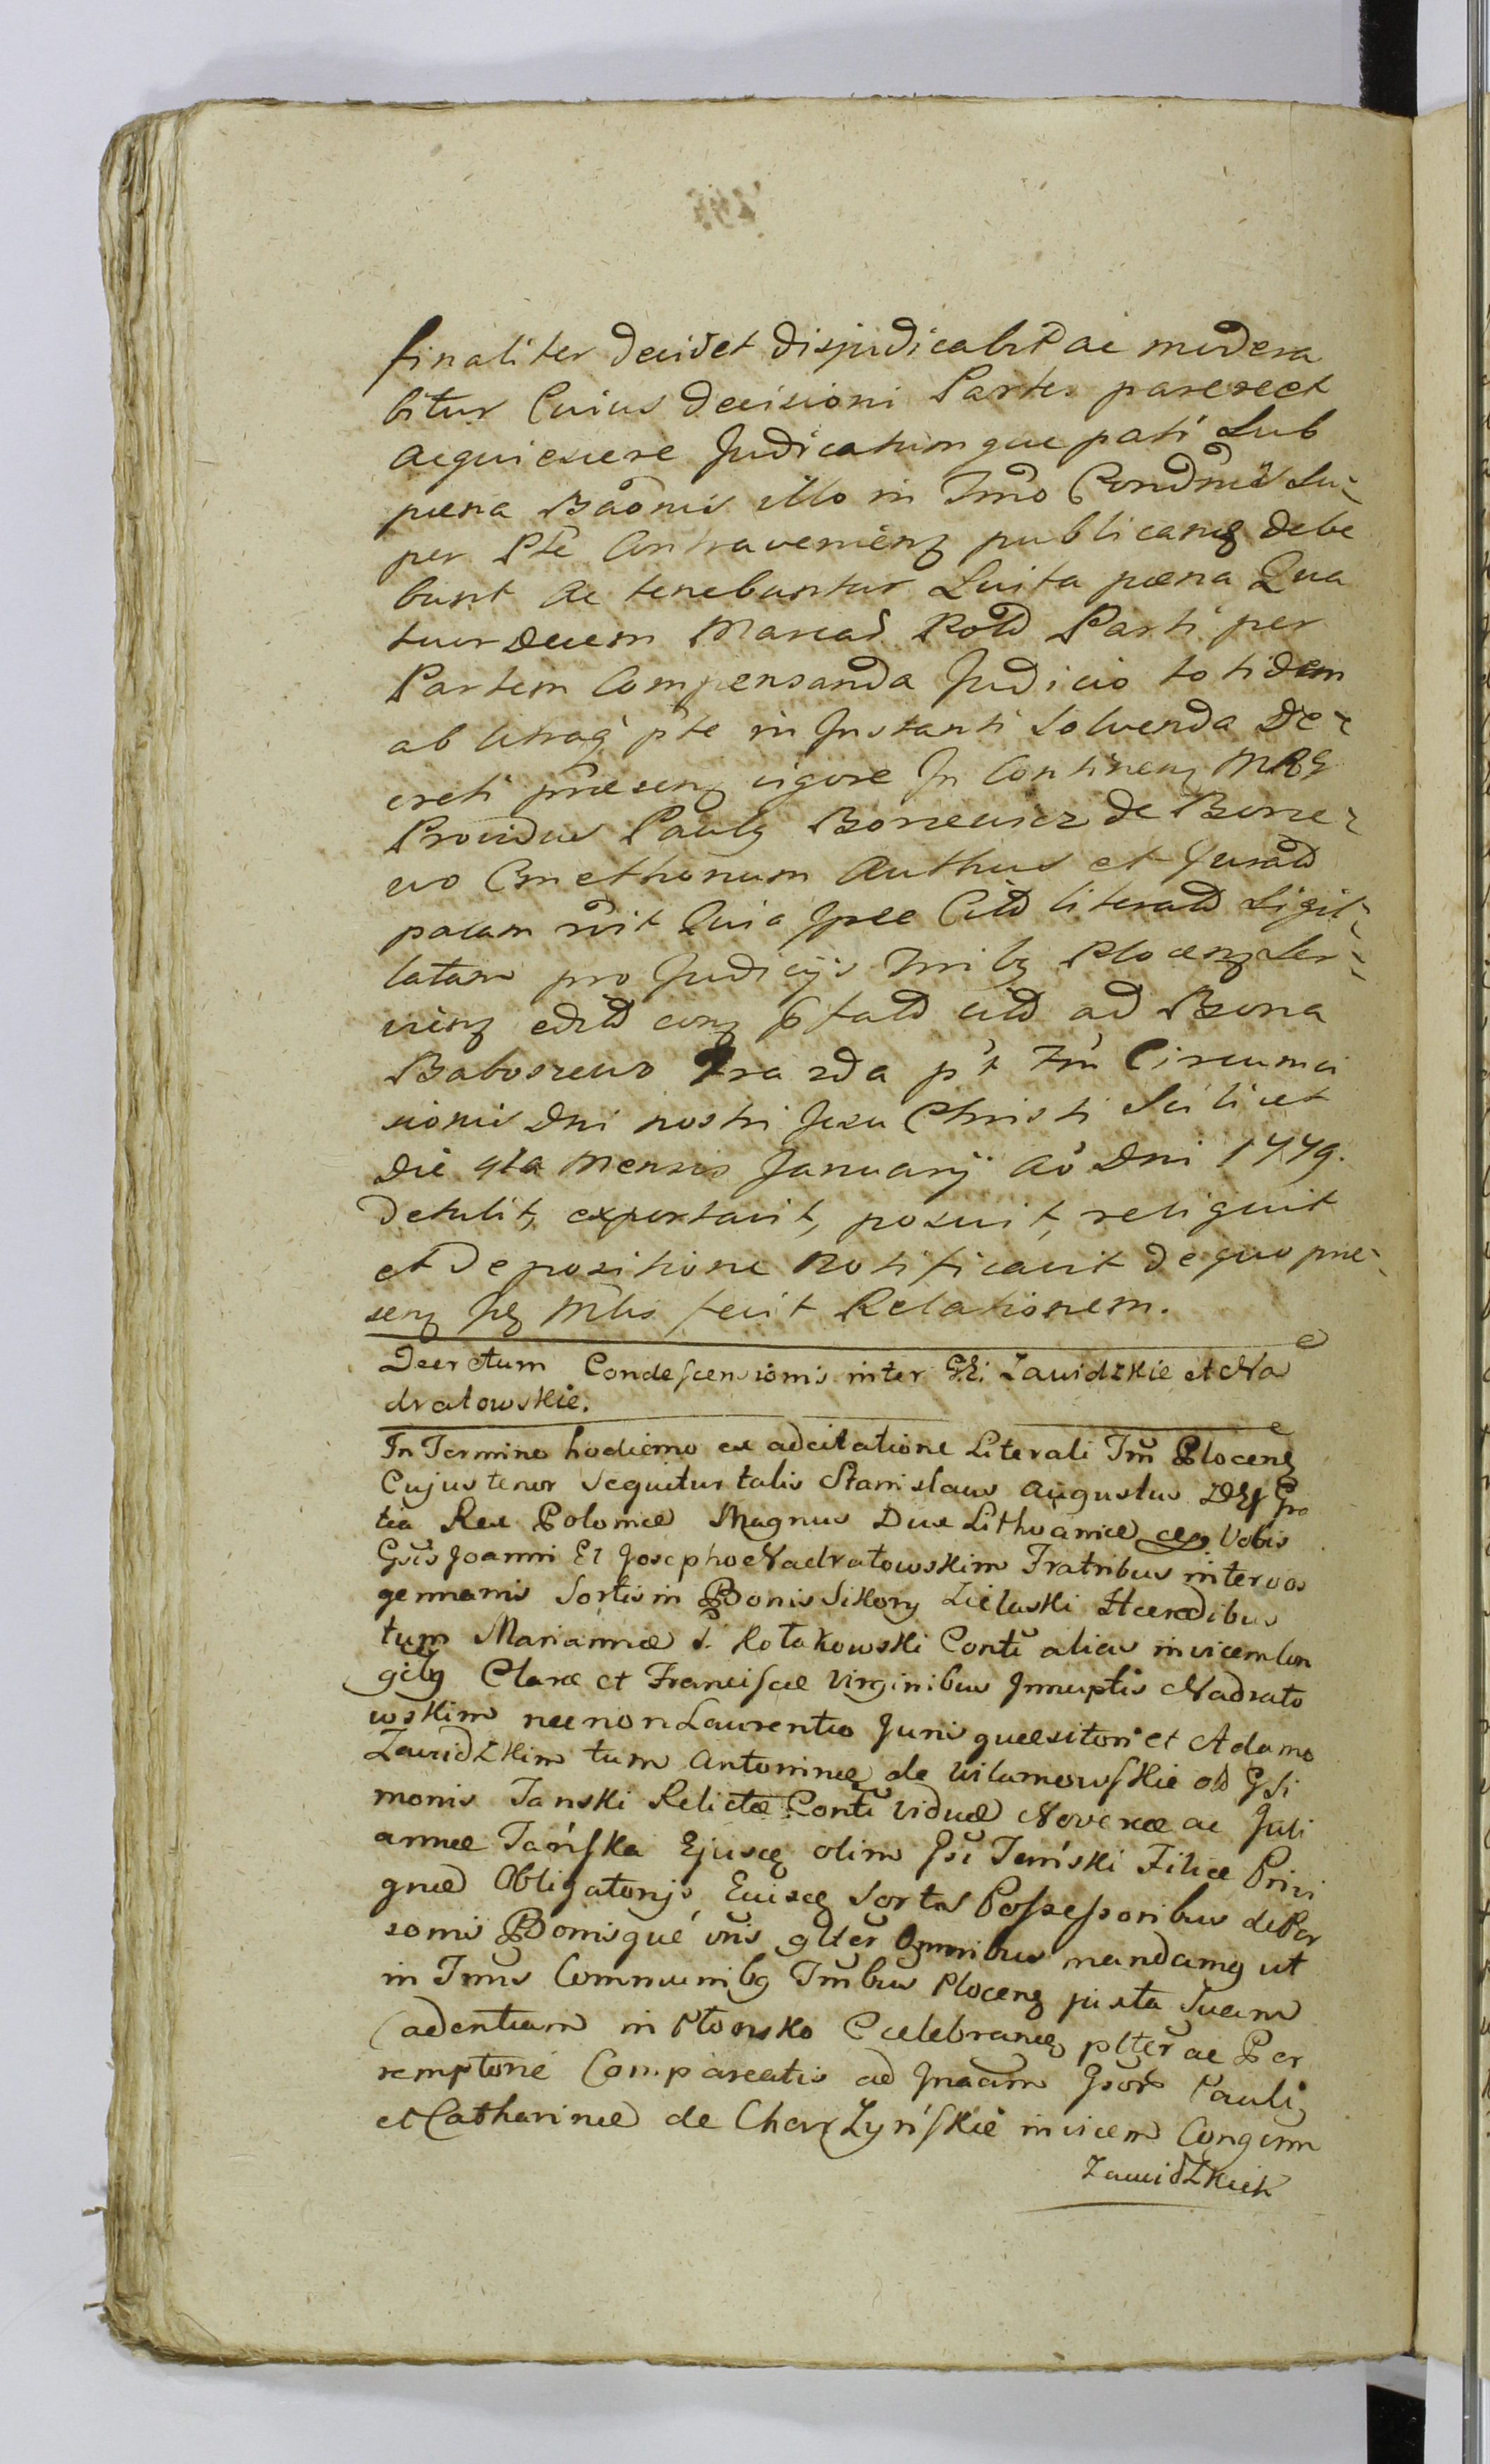 finaliter decidet disjudicabit ac modera
bitur Cuius decisioni Partes parere et
acquiescere Judicatumque pati Sub
pœna Bãonis illo in Tmo Condñis Su-
per Pte Contravenienꝫ publicanꝫ debe
bunt ac tenebuntur Luita pœna Qua
tuordecem Marcaꝝ Polꝝ Parti per
Partem Compensanda Judicio totidem
ab utraqꝫ pte in Instanti Solvenda De-
creti præsenꝫ vigore In Continenꝫ MRG
Providus Paulꝫ Boniewicz de Bonie-
wo Cmethonum Authus et Juratꝫ
palam rõit Quia Ipse Citꝫ literalꝫ Sigil-
latam pro Judicijs Trribꝫ Plocenꝫ Ser-
vienꝫ edꝫ ad Bona
Baboszewo Fra 2da p't Fm Circumci
sionis Dni nostri Jesu Christi Scilicet
Die 4ta Mensis Januarij Aõ Dni 1779.
Detulit, exportavit, posuit, reliquit
et Depositione Notificavit de quo præ-
senꝫ fecit Relationem.
Decretum Condescensionis inter GG. Zawidzkie et Na
dratowskie.
In Termino hodierno ex adcitatione Literali Trñ Plocenꝫ
Cujus tenor sequitur talis Stanislaus Augustus DEI Gra
tia Rex Poloniæ Magnus Dux Lithuaniæ etc. Vobis
Gsis Joanni Et Josepho Nadratowskim Fratribus inter vos
germanis Sortis in Bonis Sikory Zieluski Hæredibus
tum Mariannæ 1. Kotakowski 2. alias invicem Con
gibꝫ Claræ et Franciscæ Virginibus Innuptis Nadrato
wskim necnon Laurentio Juris quæsitori et Adamo
Zawidzkim tum Antoninæ de Wilamowskie olꝫ Gsi
monis Tanski Relictæ Viduæ Novercæ ac Juli
annæ Tańska Ejusdꝫ olim Gsi Tański Filiæ Privi
gnæ Obligatorijs Ejusdꝫ Sortis Possessoribus de Per
sonis Bonisque vris gltẽr Omnibus mandamꝫ ut
in Trmis Communibꝫ Trribus Plocenꝫ juxta Suam
Cadentiam in Płonsko Celebranꝫ pltẽr ac Per
remptorie Compareatis ad Jnãam Gsorꝫ Pauli
et Catharinæ de Charzyńskie invicem Congum
Zawidzkich